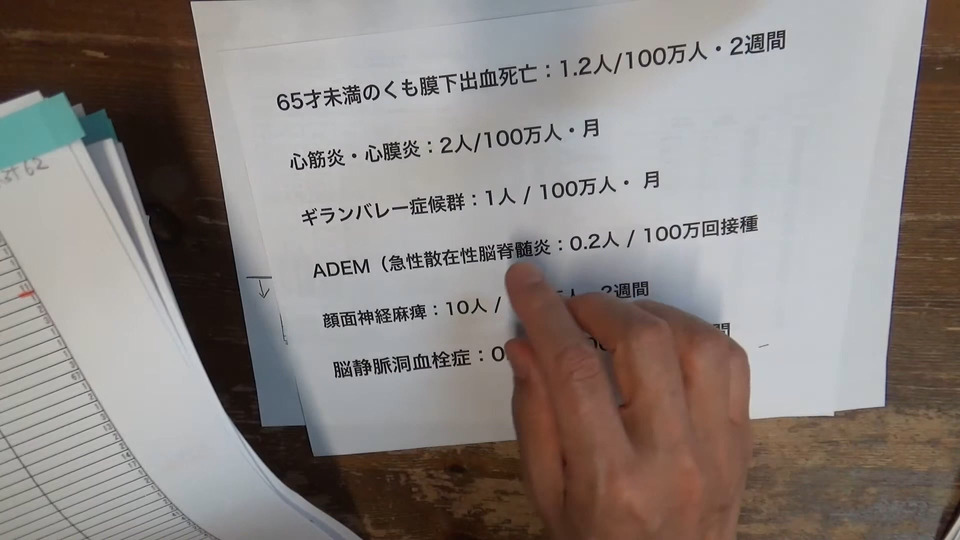 65才未満のくも膜下出血死亡：1.2人/100万人・2週間
心筋炎・心膜炎：2人/100万人・月
ギランバレー症候群：1人 / 100万人・ 月
ADEM（急性散在性脳脊髄炎：0.2人 / 100万回接種
顔面神経麻痺：10人 / 人・2週間
脳静脈洞血栓症：0 間
62